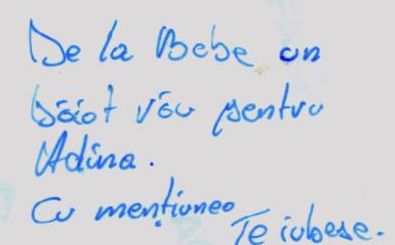 De la Bebe un
băiat rău pentru
Adina.
Cu mențiunea
Te iubesc.